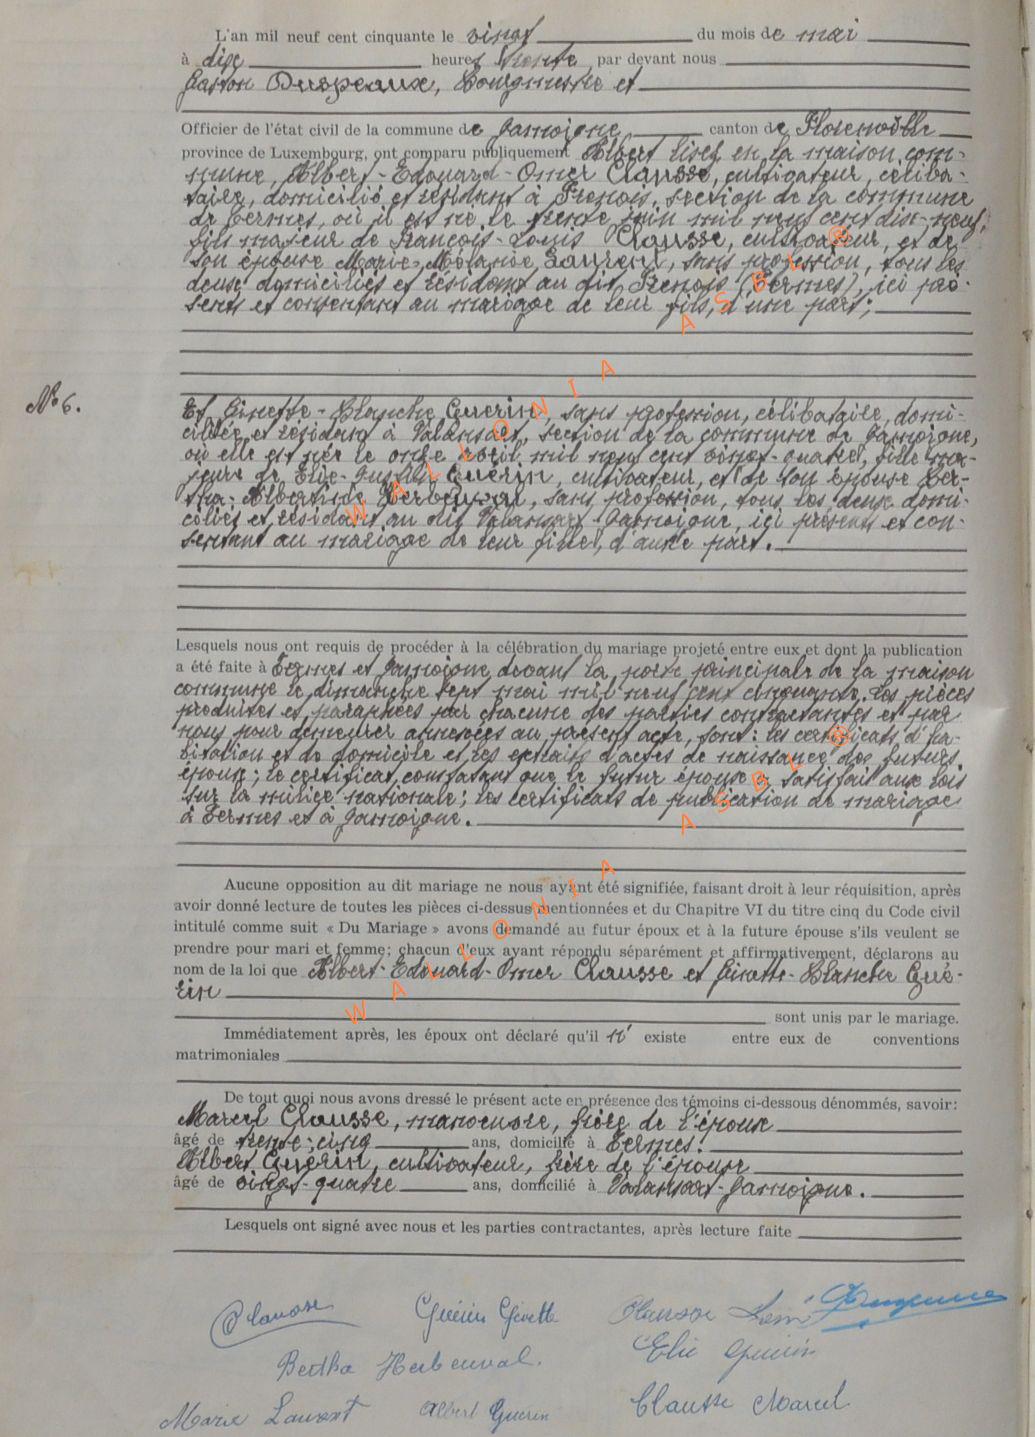 L'an mil neuf cent cinquante le vingt du mois de mai
à dix heures trente par devant nous
Gaston Duspeaux, Bourgmestre et
Officier de l'état civil de la commune de Jamoigne canton de Florenville
province de Luxembourg, ont comparu publiquement en la maison com-
mune, Albert-Edouard-Omer Clausse, cultivateur, céliba-
taire, domicilié et résidant à Frenois, section de la commune
de Termes, où il est né le trente juin mil neuf cent dix-neuf,
fils majeur de François-Louis Clausse, cultivateur, et de
son épouse Marie-Laurent, sans profession, tous les
deux domiciliés et résidant au dit Frenois (Termes), ici pré-
sents et consentant au mariage de leur fils, d'une part;
N° 6.
Et Ginette-Blanche Guerin, sans profession, célibataire, domi-
ciliée et résidant à Valansart, section de la commune de Jamoigne,
où elle est née le onze avril mil neuf cent vingt-quatre, fille ma-
jeure de Elie-Gustave Guérin, cultivateur, et de son épouse Ber-
tha-Albertine Herbeuval, sans profession, tous les deux domi-
ciliés et résidant au dit Valansart-Jamoigne, ici présents et con-
sentant au mariage de leur fille, d'autre part.
Lesquels nous ont requis de procéder à la célébration du mariage projeté entre eux et dont la publication
a été faite à Termes et Jamoigne devant la porte principale de la maison
commune le dimanche sept mai mil neuf cent cinquante. Les pièces
produites et paraphées par chacune des parties contractantes et par
nous pour demeurer annexées au présent acte, sont: les certificats d'ha-
bitation et de domicile et les extraits d'actes de naissance des futurs
époux; le certificat constatant que le futur époux a satisfait aux lois
sur la milice nationale; les certificats de publication de mariage
à Termes et à Jamoigne.
Aucune opposition au dit mariage ne nous ayant été signifiée, faisant droit à leur réquisition, après
avoir donné lecture de toutes les pièces ci-dessus mentionnées et du Chapitre VI du titre cinq du Code civil
intitulé comme suit « Du Mariage » avons demandé au futur époux et à la future épouse s'ils veulent se
prendre pour mari et femme; chacun d'eux ayant répondu séparément et affirmativement, déclarons au
nom de la loi que Albert-Edouard-Omer Clausse et Ginette-Blanche Gué-
rin
sont unis par le mariage.
Immédiatement après, les époux ont déclaré qu'il n' existe entre eux de conventions
matrimoniales
De tout quoi nous avons dressé le présent acte en présence des témoins ci-dessous dénommés, savoir:
Marcel Clausse, manoeuvre, frère de l'époux
âgé de trente-cinq ans, domicilié à Termes.
Albert Guérin, cultivateur, frère de l'épouse
âgé de vingt-quatre ans, domicilié à Valansart-Jamoigne.
Lesquels ont signé avec nous et les parties contractantes, après lecture faite
Clausse Guérin Ginette Clausse Louis
Bertha Herbeuval. Elie Guérin
Marie Laurent Albert Guérin Clausse Marcel
WALLONIA ASBL ®
WALLONIA ASBL ®